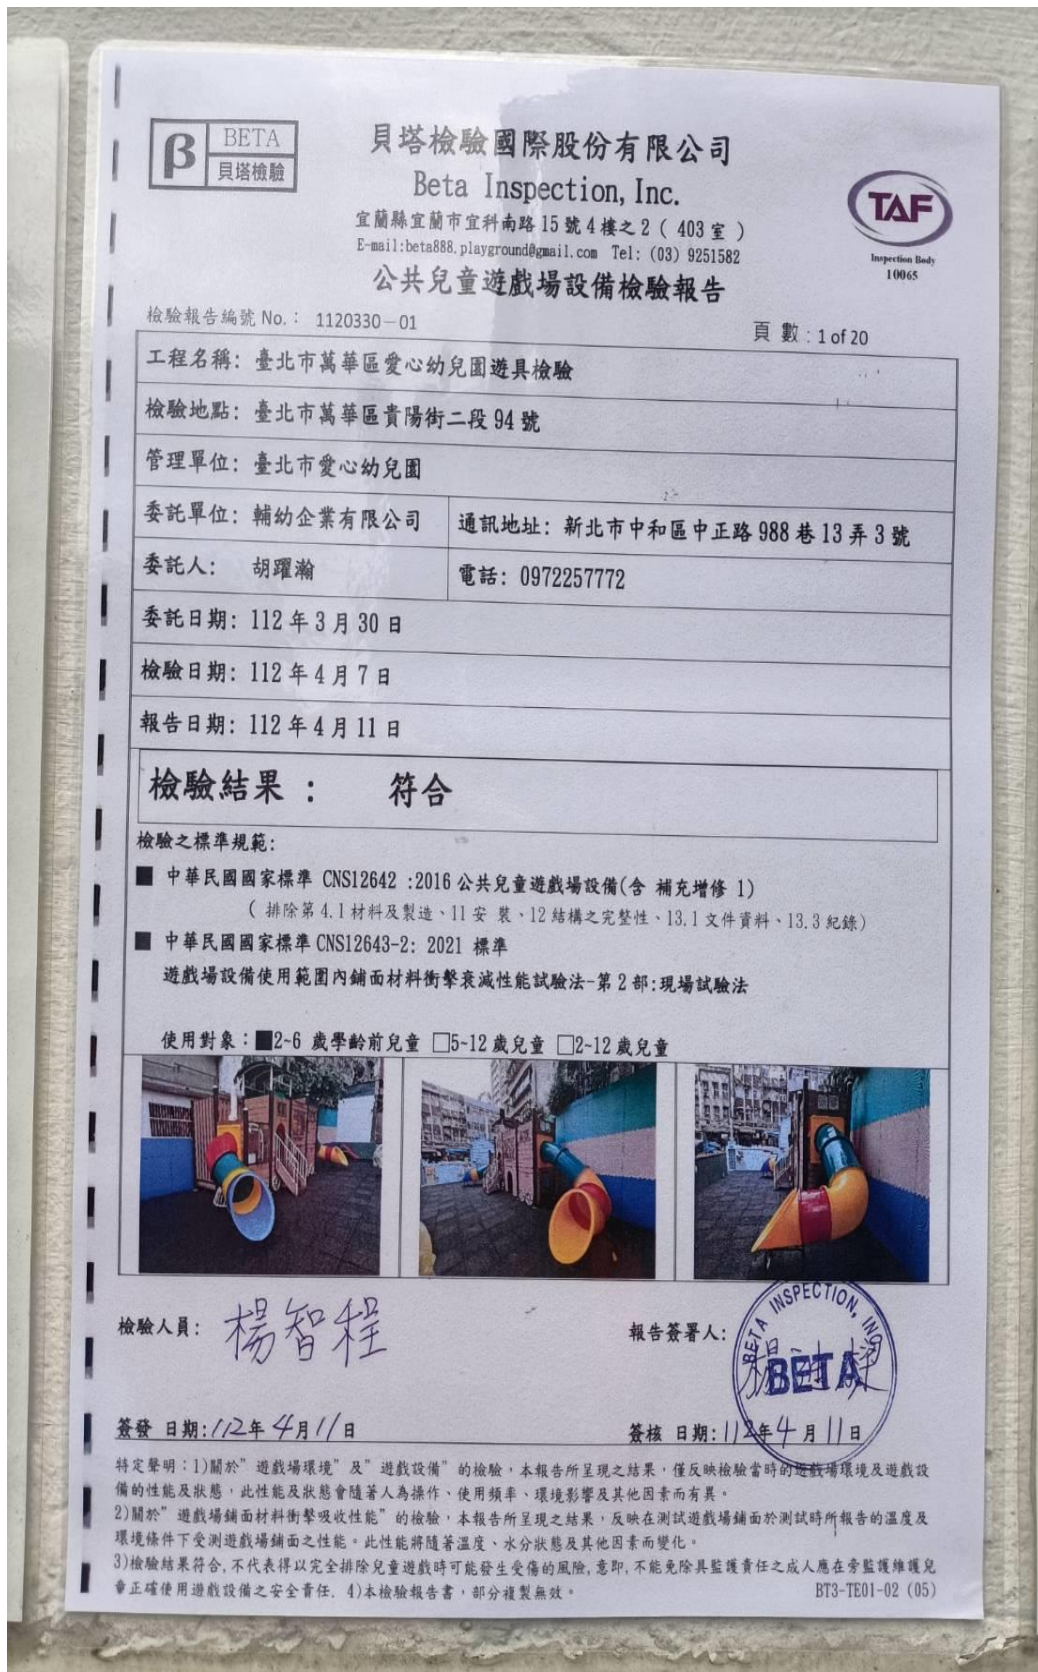 β BETA
貝塔檢驗
貝塔檢驗國際股份有限公司
Beta Inspection, Inc.
宜蘭縣宜蘭市宜科南路 15 號 4 樓之 2 ( 403 室 )
E-mail:beta888.playground@gmail.com Tel: (03) 9251582
公共兒童遊戲場設備檢驗報告
TAF
Inspection Body
10065
檢驗報告編號 No.： 1120330－01
頁 數 : 1 of 20
工程名稱: 臺北市萬華區愛心幼兒園遊具檢驗
檢驗地點: 臺北市萬華區貴陽街二段 94 號
管理單位: 臺北市愛心幼兒園
委託單位: 輔幼企業有限公司 通訊地址: 新北市中和區中正路 988 巷 13 弄 3 號
委託人: 胡躍瀚 電話: 0972257772
委託日期: 112 年 3 月 30 日
檢驗日期: 112 年 4 月 7 日
報告日期: 112 年 4 月 11 日
檢驗結果 : 符合
檢驗之標準規範:
■ 中華民國國家標準 CNS12642 :2016 公共兒童遊戲場設備(含 補充增修 1)
( 排除第 4.1 材料及製造、11 安 裝、12 結構之完整性、13.1 文件資料、13.3 紀錄)
■ 中華民國國家標準 CNS12643-2: 2021 標準
遊戲場設備使用範圍內鋪面材料衝擊衰減性能試驗法-第 2 部:現場試驗法
使用對象：■2~6 歲學齡前兒童 □5~12 歲兒童 □2~12 歲兒童
檢驗人員: 楊智程
報告簽署人:
BETA INSPECTION, INC
BETA
簽發 日期:112年 4月11日
簽核 日期:112年4月11日
特定聲明：1)關於”遊戲場環境”及”遊戲設備”的檢驗，本報告所呈現之結果，僅反映檢驗當時的遊戲場環境及遊戲設
備的性能及狀態，此性能及狀態會隨著人為操作、使用頻率、環境影響及其他因素而有異。
2)關於”遊戲場鋪面材料衝擊吸收性能”的檢驗，本報告所呈現之結果，反映在測試遊戲場鋪面於測試時所報告的溫度及
環境條件下受測遊戲場鋪面之性能。此性能將隨著溫度、水分狀態及其他因素而變化。
3)檢驗結果符合,不代表得以完全排除兒童遊戲時可能發生受傷的風險,意即,不能免除具監護責任之成人應在旁監護維護兒
童正確使用遊戲設備之安全責任. 4)本檢驗報告書，部分複製無效。
BT3-TE01-02 (05)